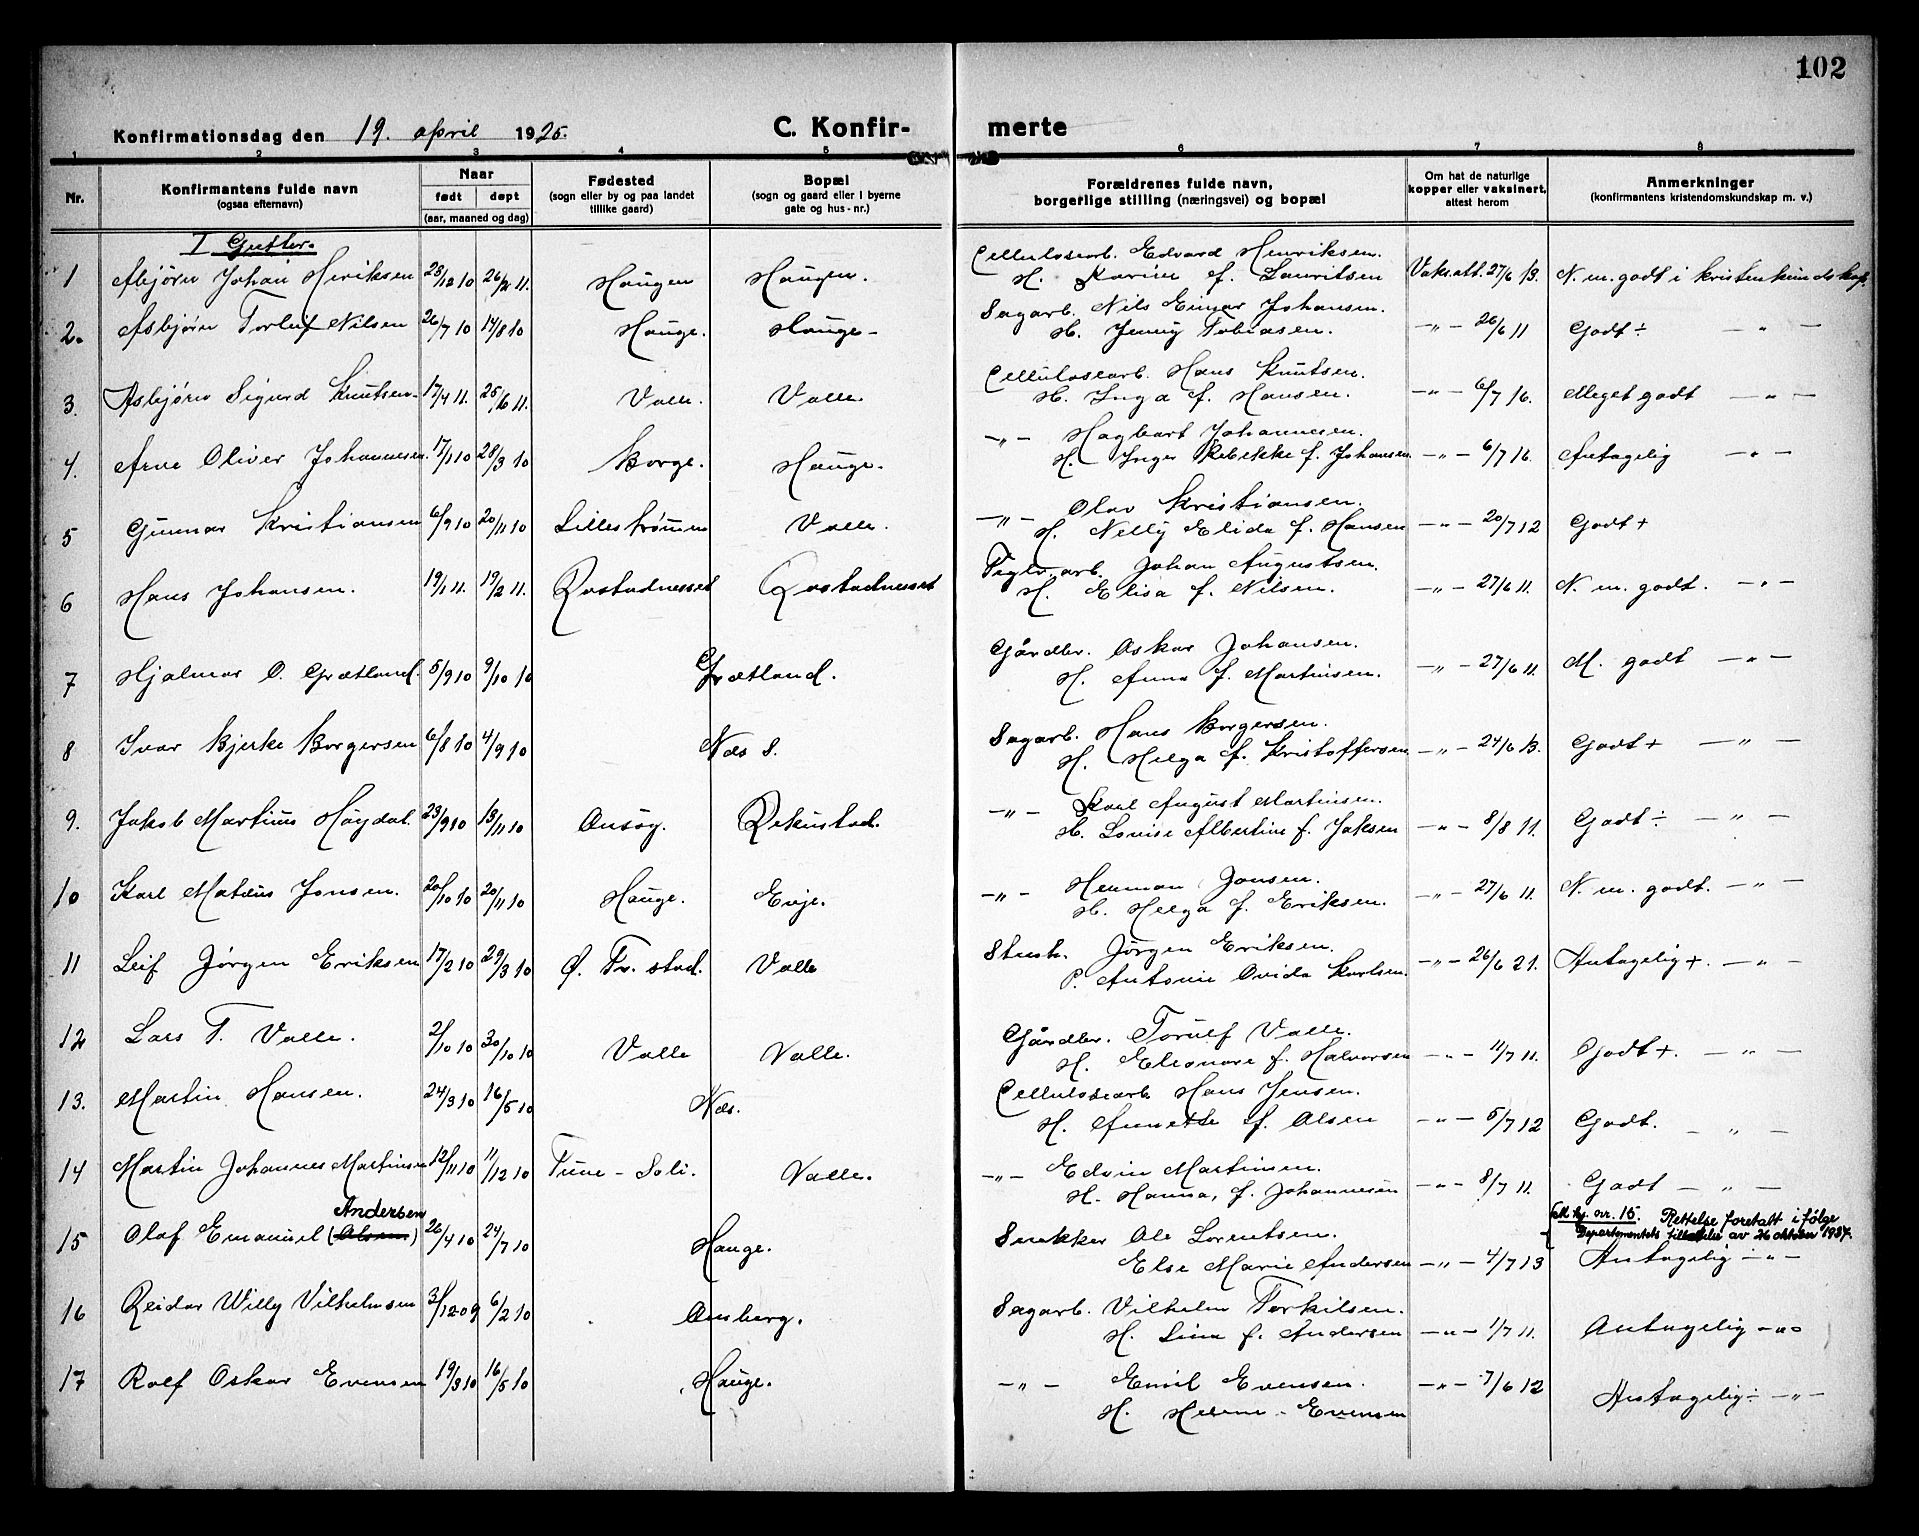 102
Konfirmationsdag den 19. april 1925.
C. Konfir-merte
1 2 3 4 5 6 7 8
Nr.
Konfirmantens fulde navn
(ogsaa efternavn)
Naar
født døpt
(aar, maaned og dag)
Fødested
(sogn eller by og paa landet
tillike gaard)
Bopæl
(sogn og gaard eller i byerne
gate og hus-nr.)
Forældrenes fulde navn,
borgerlige stilling (næringsvei) og bopæl
Om hat de naturlige
kopper eller vaksinert,
attest herom
Anmerkninger
(konfirmantens kristendomskundskap m. v.)
I Gutter.
Cellulosearb. Edvard Henriksen.
1 Asbjørn Johan Henriksen 23/12 10 26/2 11. Haugen Haugen. H. Karine f. Lauritsen Vaks.att. 27/6 13. N. m. godt i kristenkundskap.
Sagarb. Nils Einar Johansen.
2. Asbjørn Torleif Nilsen 26/7 10 14/8 10 Hauge. Hauge- H. Jenny Tobiasen. -"- 26/6 11 Godt ÷ - " -
Cellulosearb. Hans Knutsen.
3. Asbjørn Sigurd Knutsen. 17/4 11. 25/6 11. Valle. Valle. H. Inga f. Hansen. -"- 6/7 16. Meget godt - " -
-"- Hagbart Johannesen.
4. Arne Oliver Johannesen. 17/1 10 28/3 10 Borge. Hauge. H. Inger Rebekke f. Johansen -"- 6/7 16. Antagelig - " -
-"- Olav Kristiansen.
5 Gunnar Kristiansen 6/9 10 20/11 10 Lillestrømm Valle. H. Nelly Elida f. Hansen -"- 20/7 12 Godt +
Teglv.arb. Johan Augustsen.
6 Hans Johansen. 19/1 11. 19/2 11. Rostadnesset Rostadnesset H. Elisa f. Nilsen. -"- 27/6 11. N. m. godt. - " -
Gårdbr. Oskar Johansen.
7 Hjalmar O. Grætland. 5/9 10 9/10 10 Grætland. H. Anna f. Martinsen. -"- 27/6 11. M. godt - " -
Sagarb. Hans Borgersen.
8 Ivar Bjerke Borgersen 6/8 10 4/9 10 Næs S. H. Helga f. Kristoffersen. -"- 24/6 13. Godt + - " -
-"- Karl August Martinsen.
9. Jakob Martinus Høydal. 23/9 10 13/11 10 Onsøy. Rekustad. H. Lovise Albertine f. Jaksen -"- 8/8 11. Godt ÷ - " -
-"- Herman Jonsen.
10 Karl Matæus Jonsen. 20/10 10 20/11 10 Hauge. Evje. H. Helga f. Eriksen. -"- 27/6 11. N. m. godt. - " -
Stenh. Jørgen Eriksen.
11 Leif Jørgen Eriksen 17/2 10 29/3 10 Ø. Fr. stad. Valle P. Antonie Ovida Karlsen. -"- 26/6 21. Antagelig +. - " -
Gårdbr. Torulf Valle.
12 Lars T. Valle. 2/10 10 30/10 10 Valle Valle. H. Eleonore f. Halvorsen -"- 11/7 11. Godt +. - " -
Cellulosearb. Hans Jensen.
13. Martin Hansen. 24/3 10 16/5 10 Næs. H. Annette f. Olsen -"- 5/7 12 Godt. - " -
-"- Edvin Martinsen.
14 Martin Johannes Martinsen 12/11 10 11/12 10 Tune - Soli. Valle. H. Hanna, f. Johannesen -"- 8/7 11. Godt - " -
Andersen
15 Olaf Emanuel (Olsen) 26/4 10 24/7 10 Hauge. Snekker Ole Lorentsen.
Else Marie Andersen -"- 4/7 13 Antagelig - " -
nr. 15. Rettelse foretatt i følge
Departementets tillatelse av 26 oktober 1937.
16 Reidar Willy Vilhelmsen 31/12 09 6/2 10 Onsberg. Sagarb. Vilhelm Torkilsen.
H. Lina f. Andersen -"- 1/7 11. Antagelig - " -
17 Rolf Oskar Evensen 19/3 10 16/5 10 Hauge. -"- Emil Evensen.
H. Evensen -"- 7/6 12 Antagelig ÷ - " -